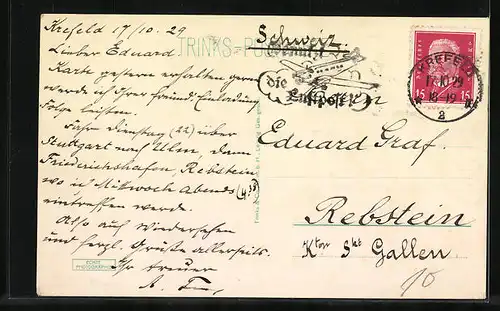 Krefeld 17/10.29
Lieber Eduard
Karte gestern erhalten gern
werde ich Ihrer freundl. Einladung
Folge leisten.
Fahre Dienstag (22) über
Stuttgart nach Ulm, dann
Friedrichshafen, Rebstein
wo ich Mittwoch Abends (4³⁵)
eintreffen werde.
Also auf Wiedersehen
und herzl. Grüße allerseits.
Ihr treuer
ECHTE
PHOTOGRAPHIE
TRINKS-
Schweiz.
Benutzt
die
Luftpost
KREFELD
17.10.29
18-19
a
15 15
Herrn
Eduard Graf.
Rebstein
Kton Skt Gallen
10